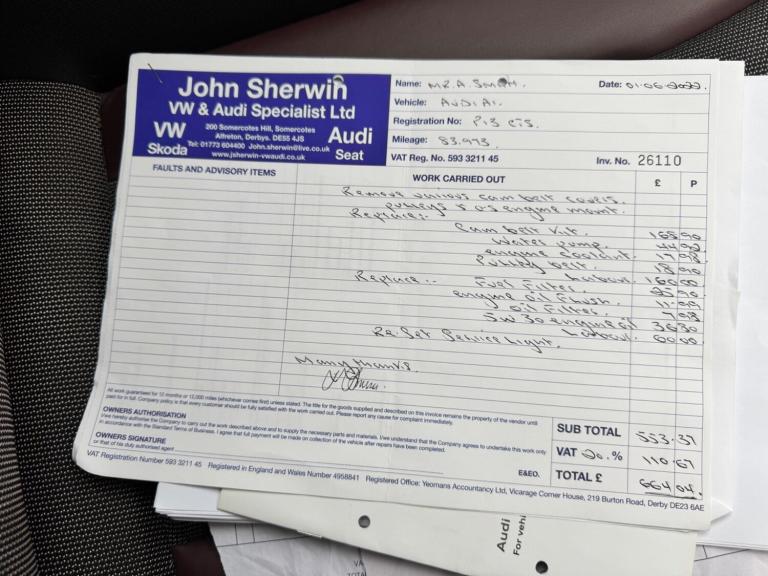 John Sherwin
VW & Audi Specialist Ltd
VW
Skoda
200 Somercotes Hill, Somercotes
Alfreton, Derbys. DE55 4JS
Tel: 01773 604400 John.sherwin@live.co.uk
www.jsherwin-vwaudi.co.uk
Audi
Seat
Name: MR.A. Smith.
Date: 01-06-2022.
Vehicle: AUDI A1.
Registration No:
Mileage: 83,993.
VAT Reg. No. 593 3211 45
Inv. No. 26110
FAULTS AND ADVISORY ITEMS
WORK CARRIED OUT
£ P
Remove various cam belt covers.
pulleys & o-s engine mount.
Replace:-
Cam belt kit. 165.90
Water pump. 44.92
engine coolant. 17.98
Pulley belt. 18.90
Labour. 160.00
Replace:- Fuel Filter.
engine oil Flush. 11.99
oil Filter. 7.98
5w30 engine oil 36.30
Labour. 60.00
Re-Set Service Light.
Many thanks.
All work guaranteed for 12 months or 12,000 miles (whichever comes first) unless stated. The title for the goods supplied and described on this invoice remains the property of the vendor until
paid for in full. Company policy is that every customer should be fully satisfied with the work carried out. Please report any cause for complaint immediately.
OWNERS AUTHORISATION
I/we hereby authorise the Company to carry out the work described above and to supply the necessary parts and materials. I/we understand that the Company agrees to undertake this work only
in accordance with the Standard Terms of Business. I agree that full payment will be made on collection of the vehicle after repairs have been completed.
OWNERS SIGNATURE
or that of his duly authorised agent
E&EO.
SUB TOTAL 553.37
VAT 20.% 110.67
TOTAL £ 664.04.
VAT Registration Number 593 3211 45 Registered in England and Wales Number 4958841 Registered Office: Yeomans Accountancy Ltd, Vicarage Corner House, 219 Burton Road, Derby DE23 6AE
Audi
For vehi
VA
TOTA